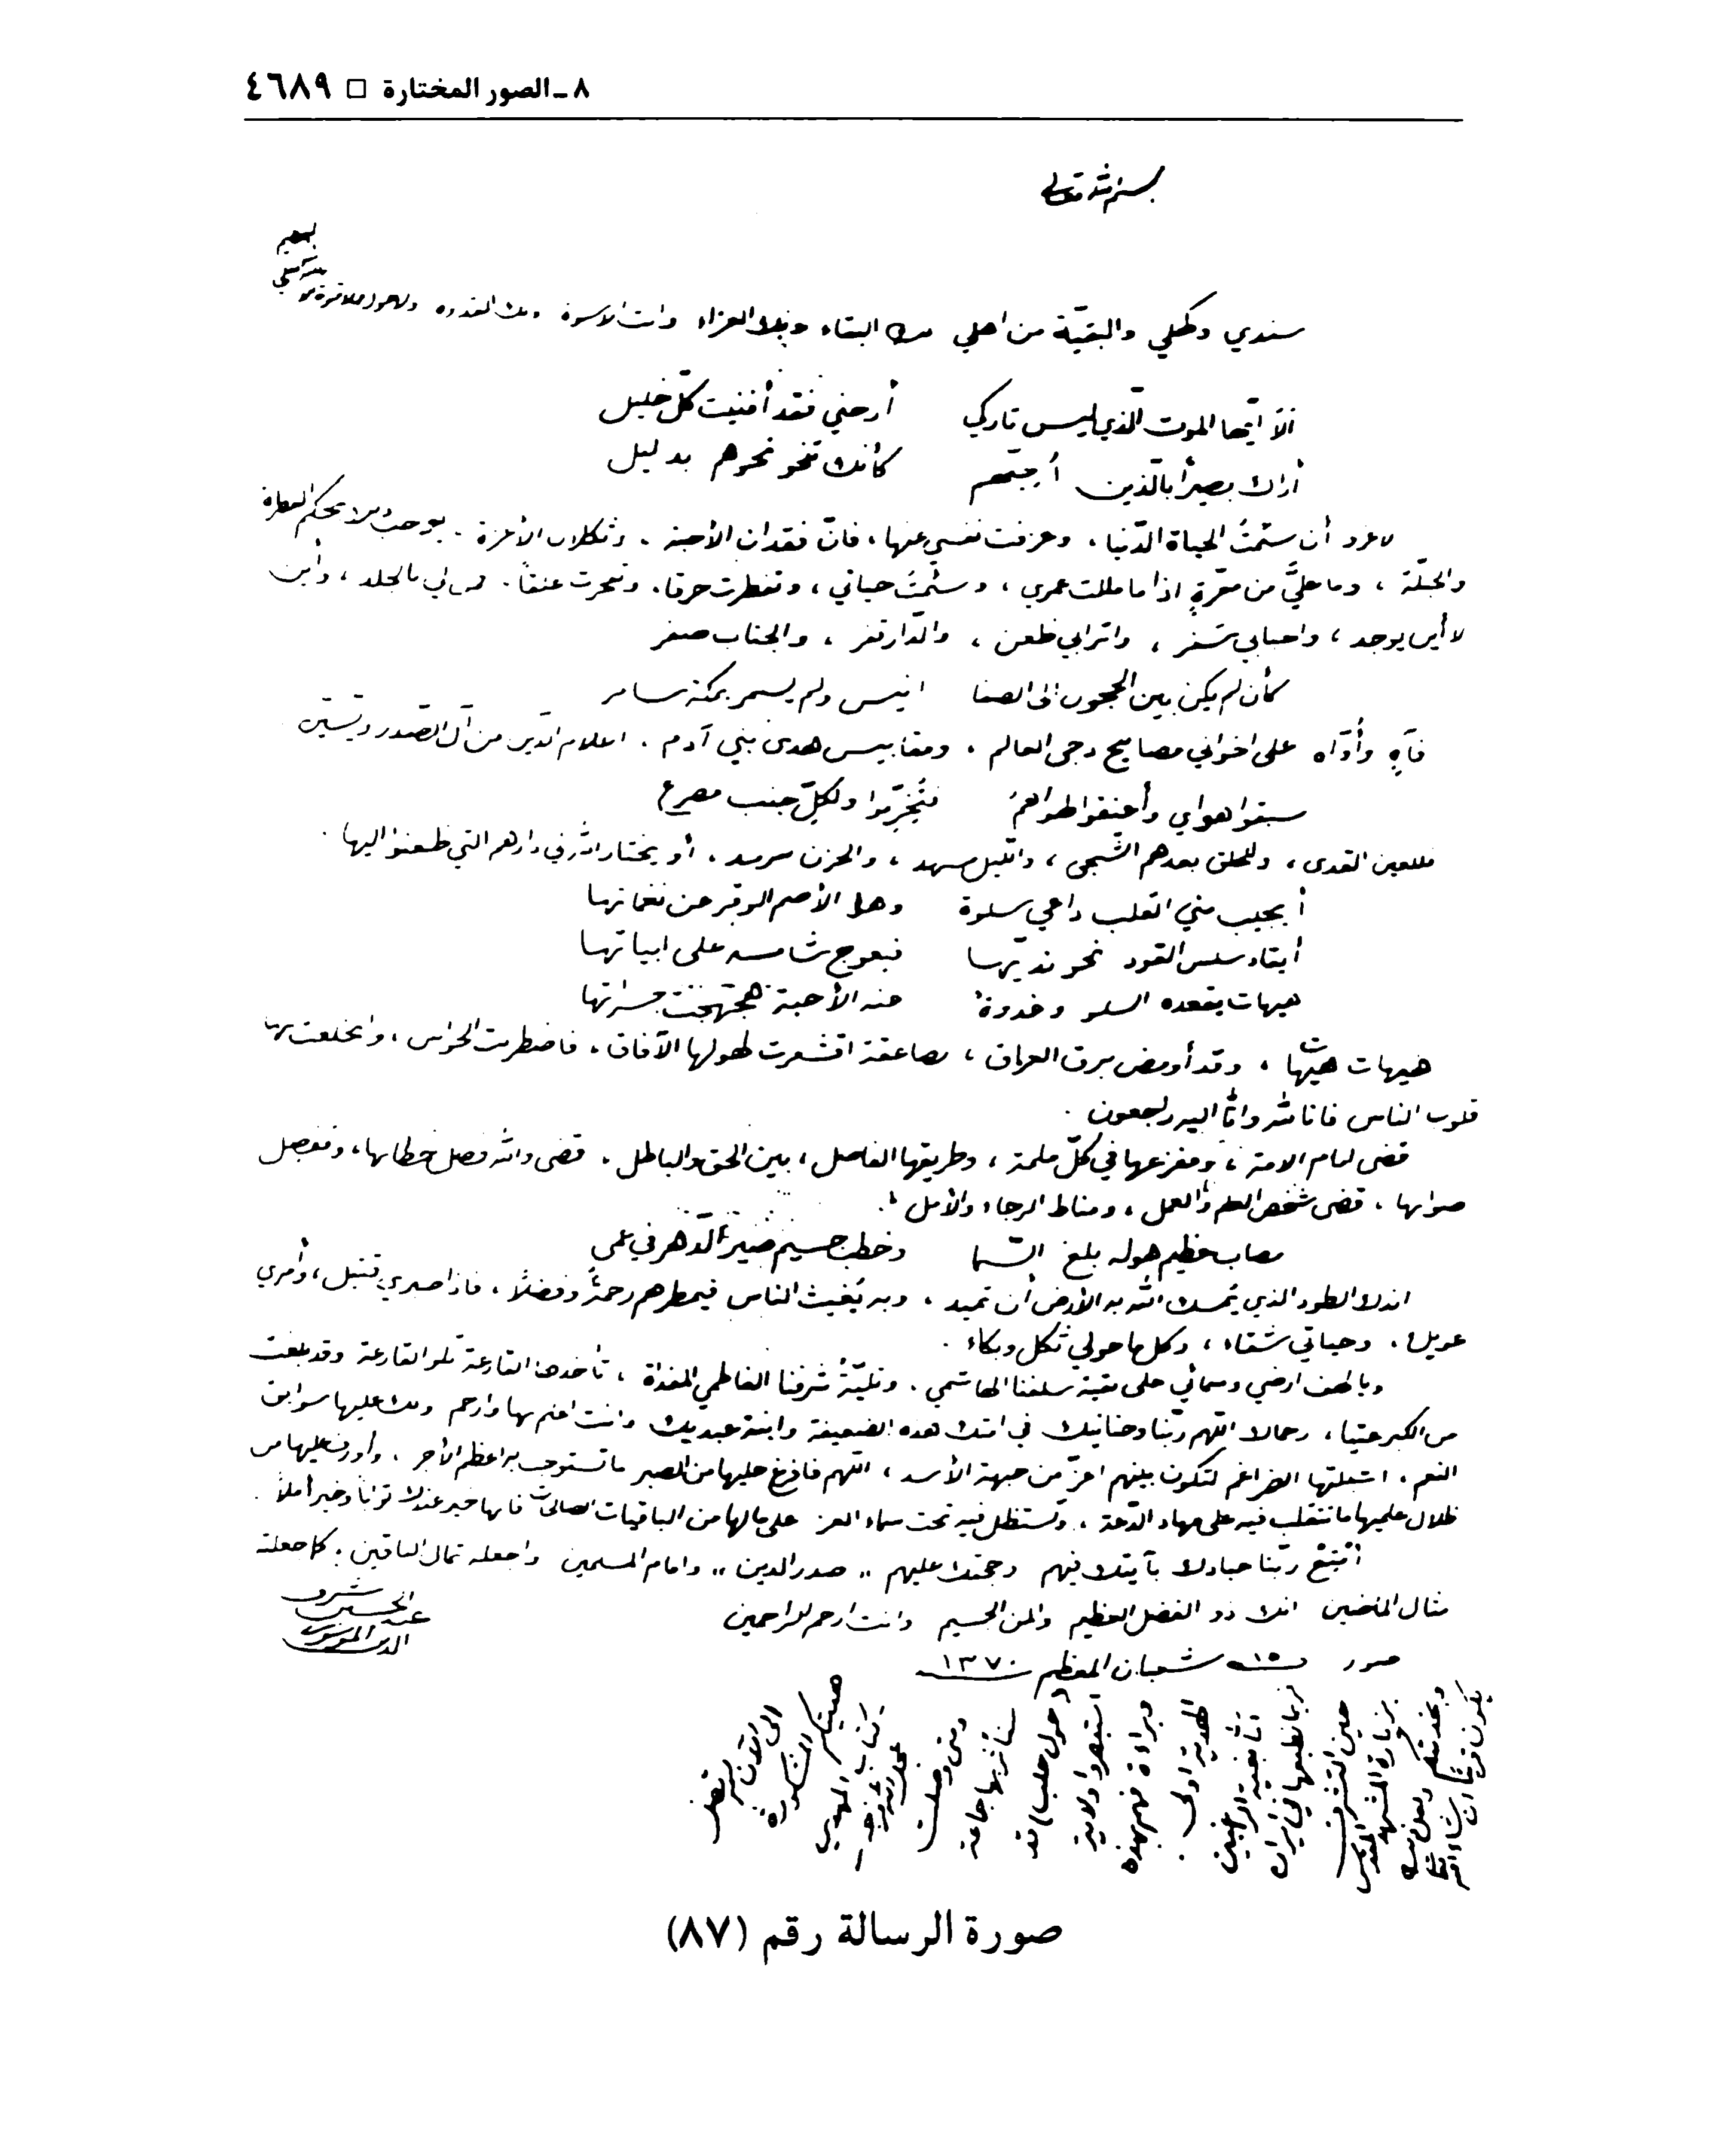 ٨ ـ الصور المختارة □ ٤٦٨٩
بسم الله تعالى
سندي وكهلي والبقيّة من اهلي لك البقاء وبك العزاء وانت الاسوة وبك القدوه ولا حول ولا قوة الا
بالله العلي
العظيم
ألا أيّها الموت الّذي ليس تاركي أرحني فقد أفنيت كلّ خليل
أراك بصيراً بالّذين أحبّهم كأنك تنحو نحوهم بدليل
لا غرو أن سئمتُ الحياة الدّنيا، وعزفت نفسي عنها، فانّ فقدان الأحبة، وثكلان الأعزة، يوجب ذلك بحكم الفطرة
والجبلّة، وما عليَّ من معرّةٍ اذا ما مللت عمري، وسئمتُ حياتي، وتفطرت حرقا، وتحرت عنقاً. فمن لي بالجلد، وأين
لا أين يوجد، واحبابي سَفر، واترابي ظعن، والدّار قفر، والجناب صفر
كأن لم يكن بين الحجون الى الصفا انيس ولم يسمر بمكة سامر
فآهٍ وأوّاه على اخواني مصابيح دجى العالم، ومقابيس هدى بني آدم، اعلام الدّين من آل الصّدر ويٰسٓ
سبقوا هواي وأعنقوا لهواهمُ فتُخُرّموا ولكلّ جنب مصرع
فللعين القذى، وللحلق بعدهم الشّجى، والليل مسهد، والحزن سرمد، أو يختار الله لي دارهم التي ظعنوا اليها.
أيجيب مني القلب داعي سلوة وهل الأصم الوقر من نغماتها
أيقاد سلس القود نحو نديّها فيعوج شامسه على ابياتها
هيهات يقعده السلو وغدوة عنه الأحبة
هيهات هيهات، وقد أومض برق العراق، بصاعقة اقشعرت لهولها الآفاق، فاضطربت الحواس، وانخلعت بها
قلوب الناس فانا لله وانّا اليه راجعون.
قضى امام الامة، ومفزعها في كلّ ملمة، وطريقها الفاصل، بين الحق والباطل، قضى والله فصل خطابها، ومفصل
صوابها، قضى شخص العلم والعمل، ومناط الرجاء والأمل.
مصاب عظيم هوله بلغ السّما وخطب جسيم صيّر الدّهر في عمى
اندك الطود الذي يُمسك الله به الأرض أن تميد، وبه يُغيث الناس فيمطرهم رحمةً وفضلاً، فاذا صبري قتيل، وأمري
عويل، وحياتي شقاء، وكل ما حولي ثكل وبكاء.
ويا لهف ارضي وسمائي على بقية سلفنا الهاشمي، وتليّة شرفنا الفاطمي المفداة، تأخذها القارعة تلو القارعة وقد بلغت
من الكبر عتيا، رحماك اللّهم ربّنا وحنانيك في امتك هذه الضعيفة وابنة عبديك وانت اعلم بها وارحم ولك عليها سوابق
النعم، اشبلتها الضراغم لتكون بينهم اعزّ من جبهة الأسد، اللّهم فافرغ عليها من الصبر ما تستوجب به اعظم الأجر، وأورف عليها من
ظلال حلمها ما تتقلب فيه على مهاد الدّعة، وتستظل فيه تحت سماء العز على مالها من الباقيات الصالحات فانها خير عندك ثوابا وخير أملاً.
أمتِع ربّنا عبادك بآيتك فيهم وحجتك عليهم ,, صدر الدين ,, وامام المسلمين واجعله ثمال الباقين، كما جعلته
مثال الماضين انك ذو الفضل العظيم والمن الجسيم وانت ارحم الراحمين
عبد الحسين شرف
الدين الموسوي
صور ١٥ شعبان المعظم ١٣٧٠
هديتكم المشكورة
الى الآن لم تصل
ومتى وصلت
سنأثر بها جماعة
(حول حلب) قد
استبصروا ولاية
وبراءة فهم بهذه
الهدية اولى.
ربما نطبعها في ايران
حين التشرف
بزيارة المشهد المقدس
وبخدمتكم ولعل ذلك
يكون قريباً ان شاء الله
صورة الرسالة رقم (٨٧)